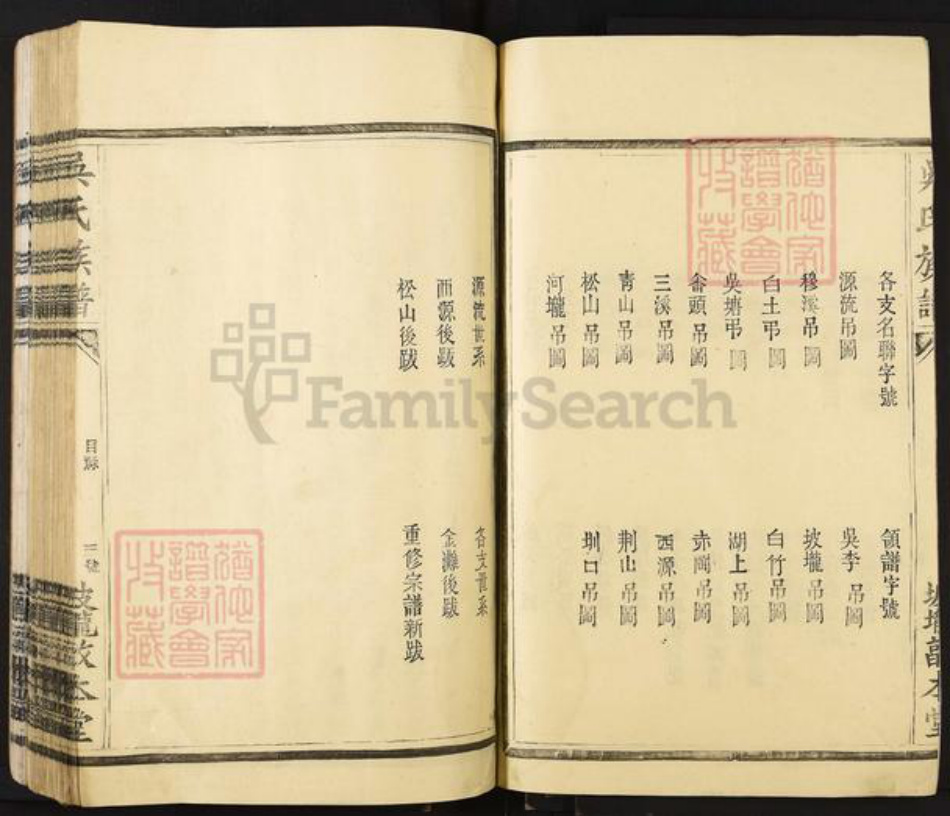 吳氏族譜
各支名聯字號
領譜字號
源流吊圖
吳李吊圖
穆溪吊圖
坡壠吊圖
白土弔圖
白竹吊圖
吳塘弔圖
湖上吊圖
畬頭吊圖
赤岡吊圖
三溪吊圖
西源吊圖
青山吊圖
荆山吊圖
松山吊圖
圳口吊圖
河壠吊圖
源流世系
各支世系
西源後跋
金灘後跋
松山後跋
重修宗譜新跋
吳氏族譜
目錄
坡壠敦本堂
FamilySearch